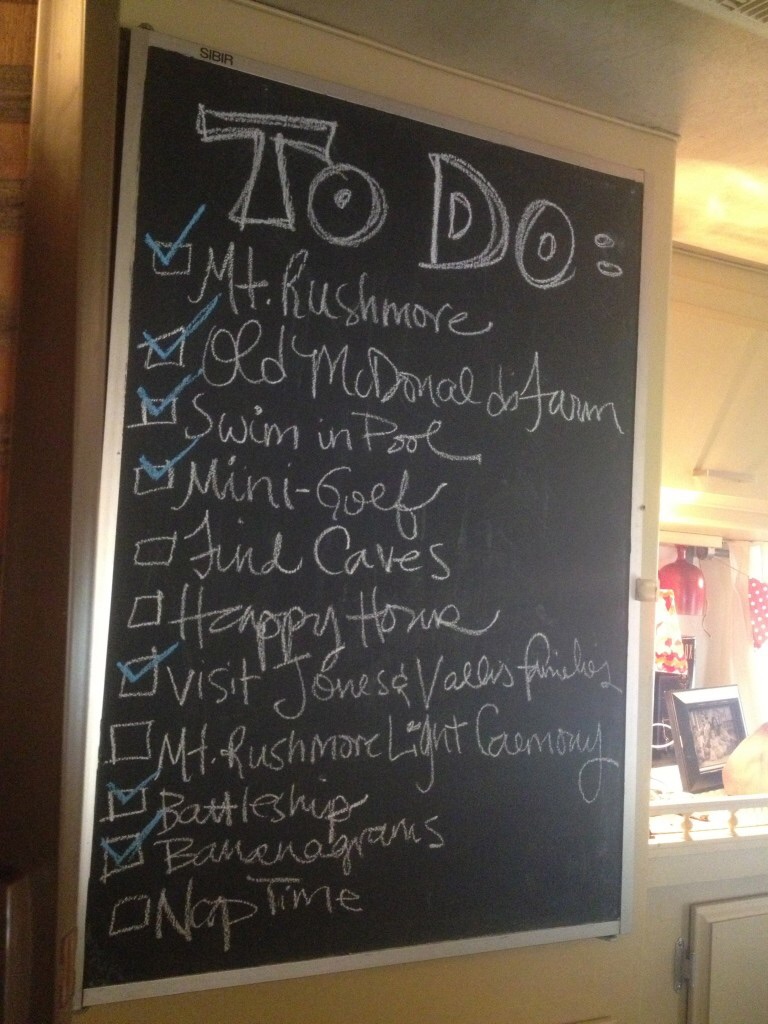 SIBIR
To Do:
Mt. Rushmore
Old McDonald's Farm
Swim in Pool
Mini-Golf
Find Caves
Happy Home
Visit Jones & Valles families
Mt. Rushmore Light Ceremony
Battleship
Bananagrams
Nap Time